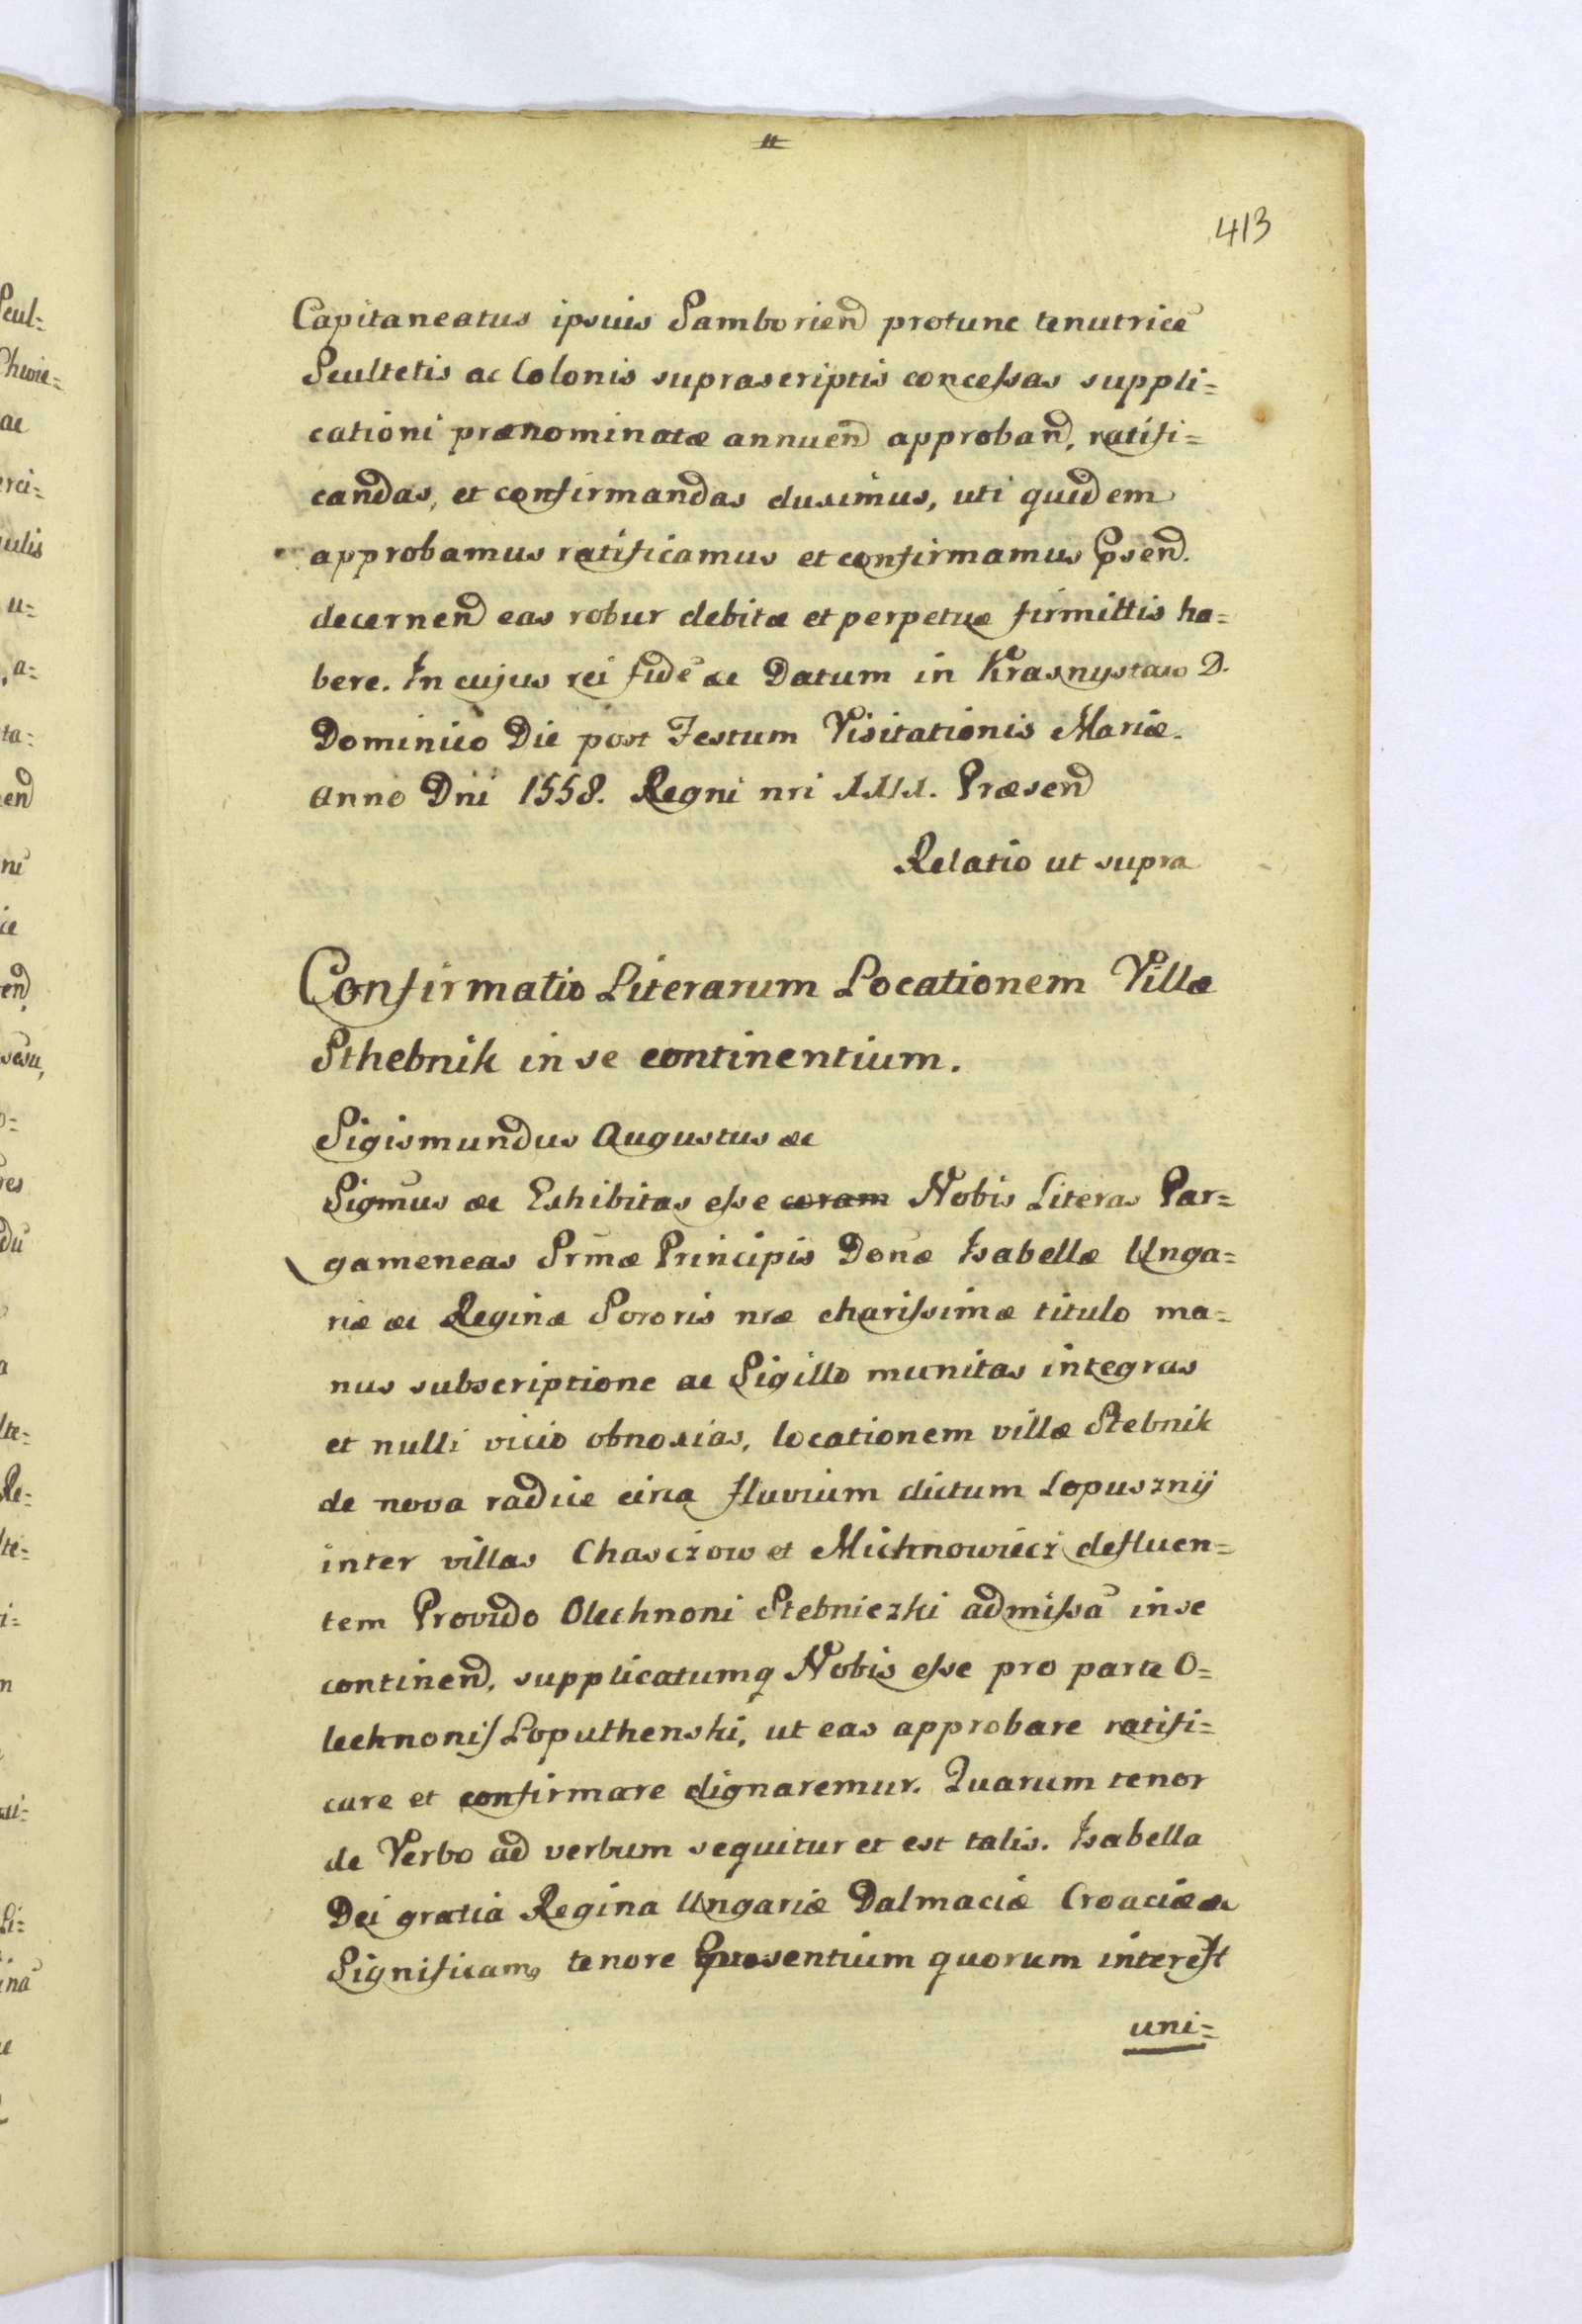 413
Capitaneatus ipsius Samborień protunc tenutricē
Scultetis ac Colonis suprascriptis concessas suppli=
cationi prænominatæ annueń approbań, ratifi=
candas, et confirmandas duximus, uti quidem
approbamus ratificamus et confirmamus Pseń.
decerneń eas robur debitæ et perpetuæ firmittis ha=
bere. In cujus rei fidē &c Datum in Krasnystaw D.
Dominico Die post Festum Visitationis Mariæ.
Anno Dni 1558. Regni nri Præseń
Relatio ut supra
Confirmatio Literarum Locationem Villæ
Sthebnik in se continentium.
Sigismundus Augustus &c
Sigmus &c Exhibitas esse coram Nobis Literas Par=
gameneas Srmæ Principis Donæ Isabellæ Unga=
riæ &c Reginæ Sororis nræ charissimæ titulo ma=
nus subscriptione ac Sigillo munitas integras
et nulli vicio obnoxias, locationem villæ Stebnik
de nova radice circa fluvium dictum Lopusznÿ
inter villas Chasczow et Michnowiecz defluen=
tem Provido Olechnoni Stebniczki admissā in se
contineń, supplicatumq Nobis esse pro parte O=
lechnonis Loputhenski, ut eas approbare ratifi=
care et confirmare dignaremur. Quarum tenor
de Verbo ad verbum sequitur et est talis. Isabella
Dei gratia Regina Ungariæ Dalmaciæ Croaciæ &c
Significamq tenore Præsentium quorum interest
uni=